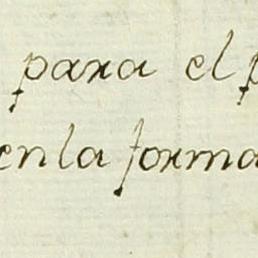 para el p
enla forma